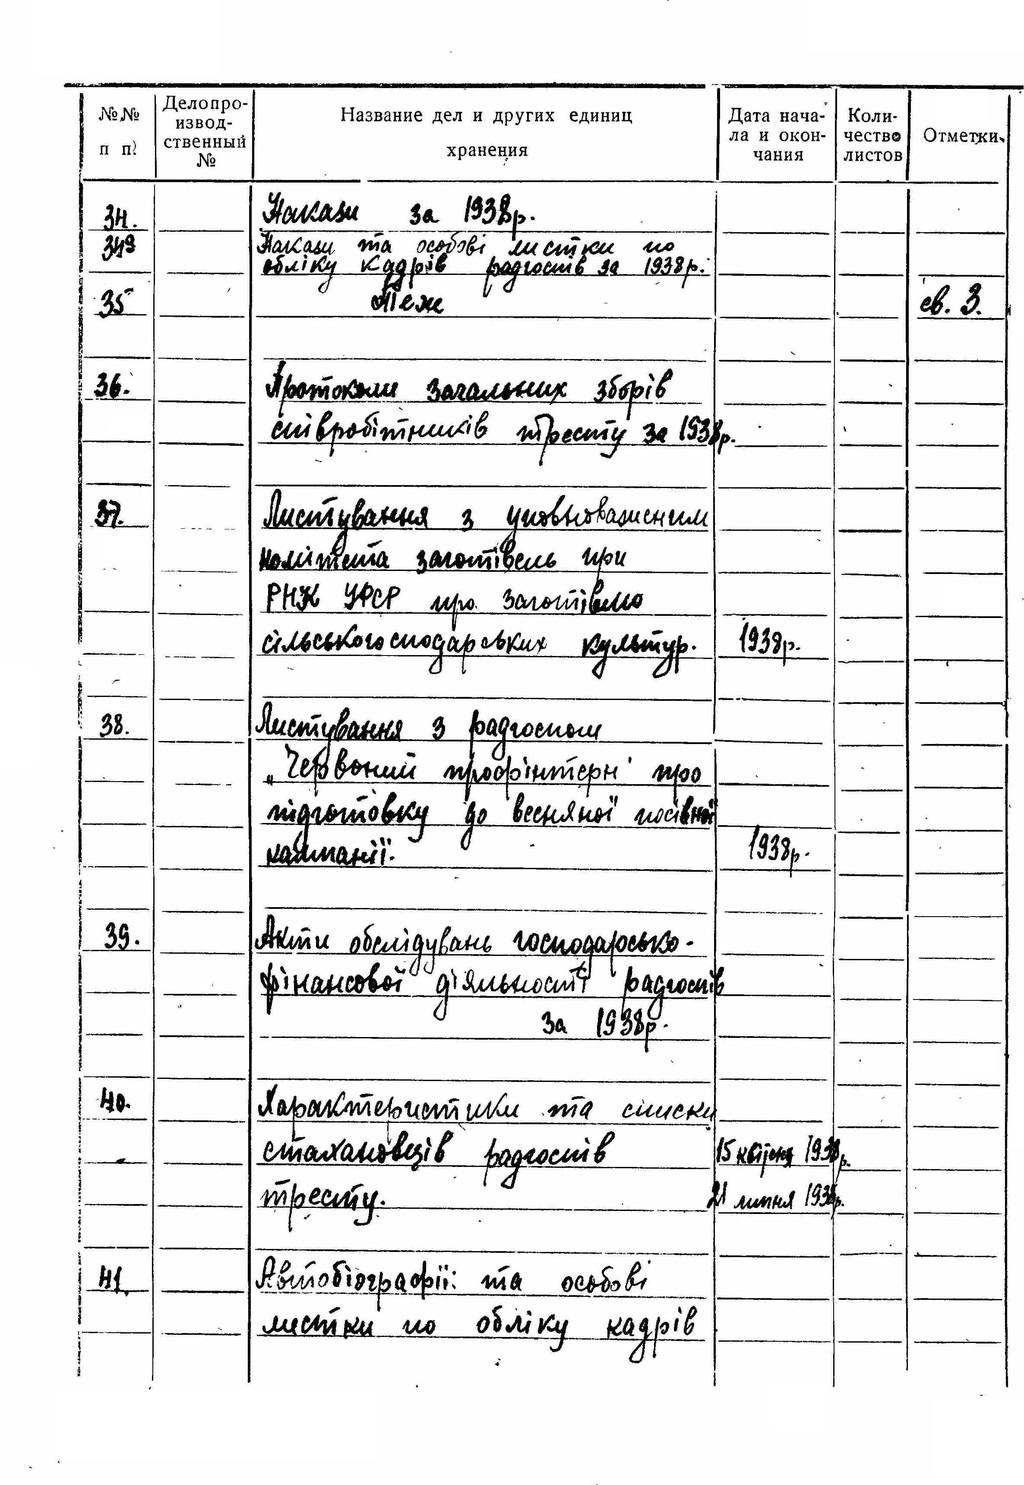 №№ п п
Делопро-
извод-
ственный
№
Название дел и других единиц
хранения
Дата нача-
ла и окон-
чания
Коли-
чество
листов
Отметки
34. Накази за 1938р.
34а Накази та особові листки по
обліку кадрів радгоспів за 1938р.
35 Теж св. 3.
36. Протоколи загальних зборів
співробітників тресту за 1938р.
37. Листування з уповноваженим
комітета заготівель при
РНК УРСР про заготівлю
сільськогосподарських культур. 1938р.
38. Листування з радгоспом
„Червоний профінтерн" про
підготовку до весняної посівної
кампанії. 1938р.
39. Акти обслідувань господарсько-
фінансової діяльності радгоспів
за 1938р.
40. Характеристики та списки
стахановців радгоспів 15 квітня 1938р.
тресту. 21 липня 1938р.
41. Автобіографії: та особові
листки по обліку кадрів